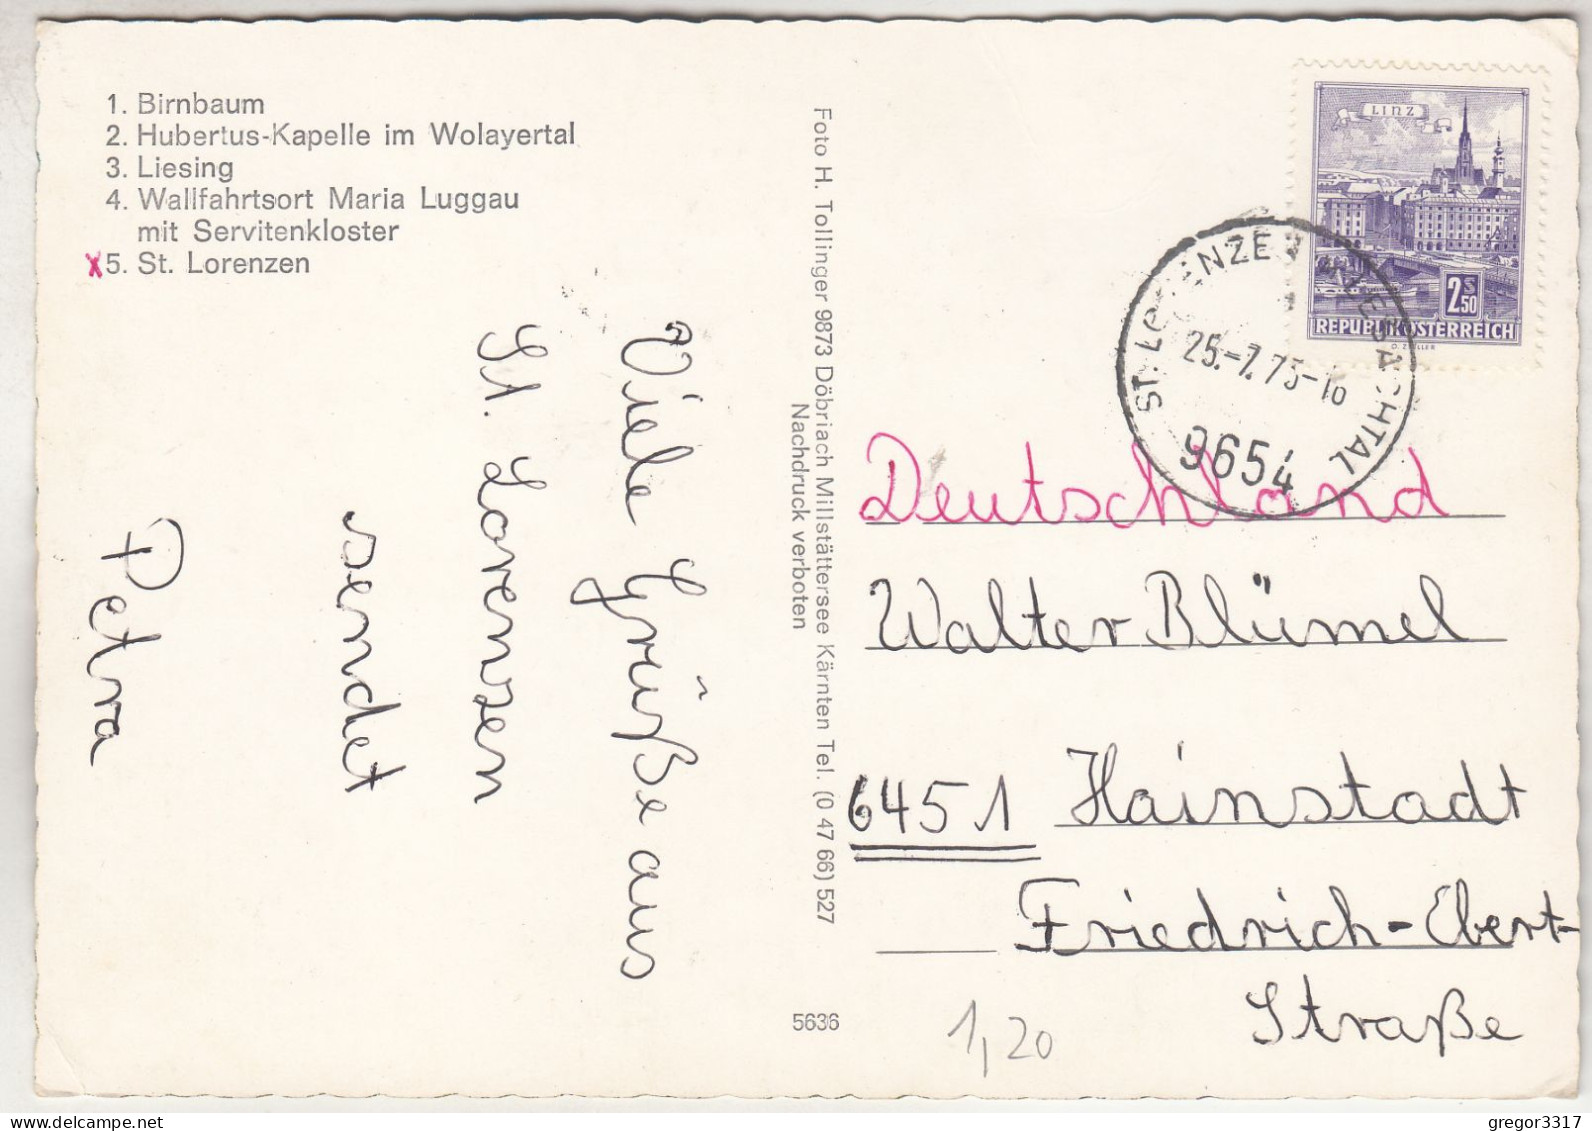 1. Birnbaum
2. Hubertus-Kapelle im Wolayertal
3. Liesing
4. Wallfahrtsort Maria Luggau
mit Servitenkloster
x5. St. Lorenzen
Viele Grüße aus
St. Lorenzen
sendet
Petra
Foto H. Tollinger 9873 Döbriach Millstättersee Kärnten Tel. (0 47 66) 527
Nachdruck verboten
5636
LINZ
2 S 50
REPUBLIK ÖSTERREICH
O. ZEILLER
ST. LORENZEN IM LESACHTAL
9654
Deutschland
Walter Blümel
6451 Hainstadt
Friedrich-Ebert-
Straße
1,20
gregor3317